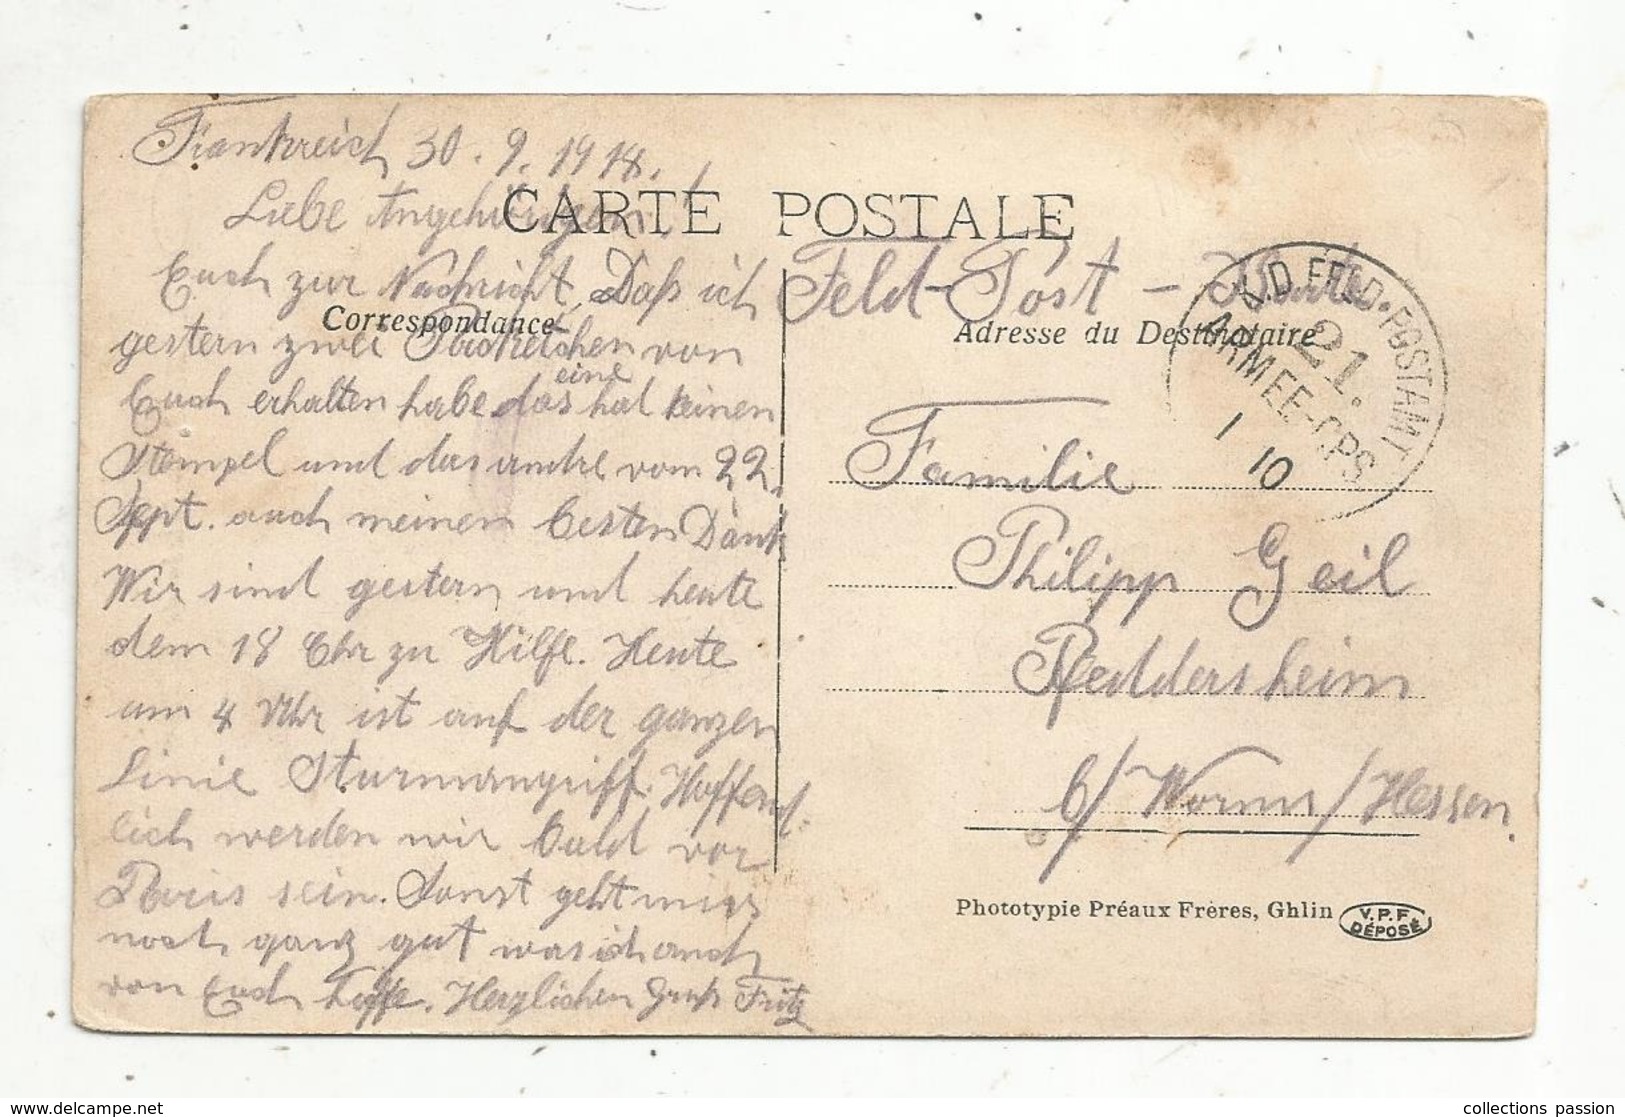 Frankreich 30.9.1918.
Liebe Angehörigen!
CARTE POSTALE
Euch zur Nachricht, Daß ich
Correspondance
gestern zwei Päckchen von
Euch erhalten habe das eine hat keinen
Stempel und das andre vom 22.
Sept. auch meinen besten Dank
Wir sind gestern und heute
dem 18 Chr zu Hilfe. Heute
um 4 Uhr ist auf der ganzen
Linie Sturmangriff. Hoffend-
lich werden wir bald vor
Paris sein. Sonst geht mirs
noch ganz gut was ich auch
von Euch hoffe. Herzlichen Gruß Fritz
Feld-Post-
K.D. FELD-POSTAMT
21.
ARMEE-CPS.
1 10
Adresse du Destinataire
Familie
Philipp Geil
Pfeddersheim
b/Worms/Hessen.
Phototypie Préaux Frères, Ghlin
V.P.F.
DÉPOSÉ
collections passion